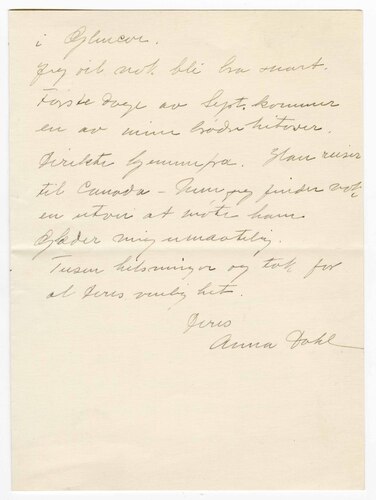 i Glencoe.
Jeg vil nok bli bra snart.
Første dage av Sept. kommer
en av mine brødre hitover.
Direkte hjemmefra. Han reiser
til Canada – Men jeg finder nok
en utvei at møte ham
Glæder mig umaatelig.
Tusen hilsninger og tak for
al Deres venlighet.
Deres
Anna Dahl